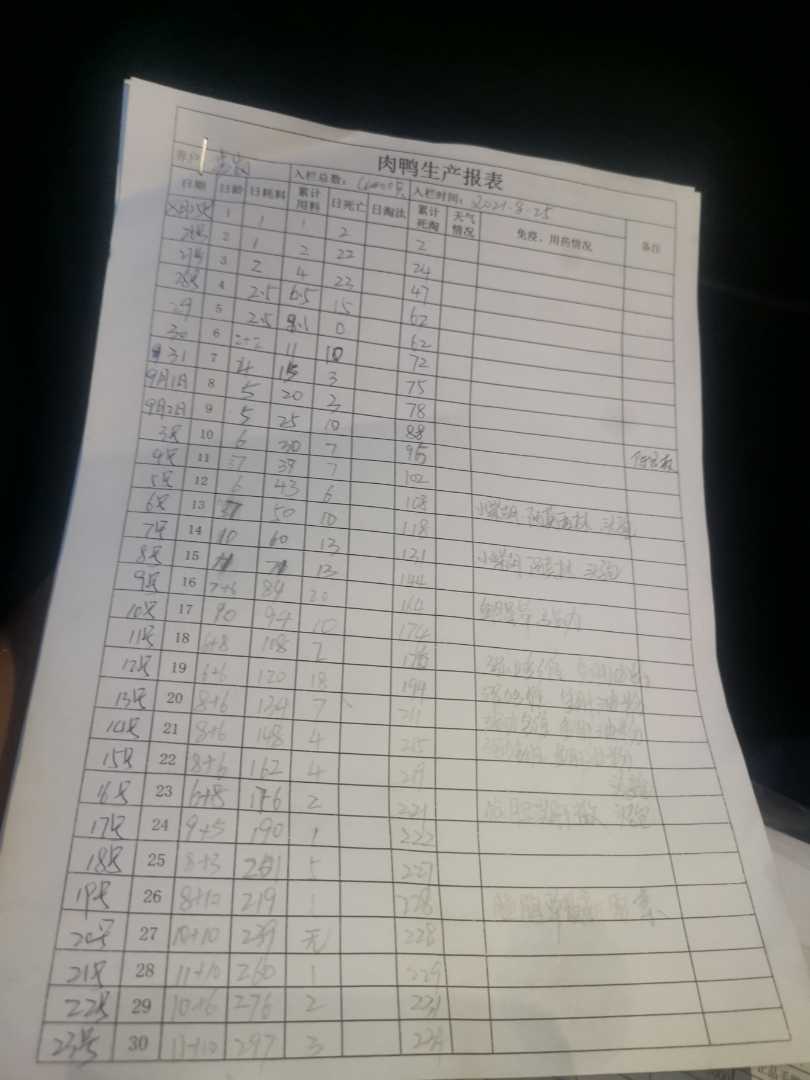 肉鸭生产报表
入栏总数： 入栏时间：2021-8-25
日期 日龄 日耗料 累计用料 日死亡 日淘汰 累计死淘 天气情况 免疫、用药情况 备注
1 1 1 2 2
2 1 2 22 24
27号 3 2 4 23 47
28号 4 2.5 6.5 15 62
29 5 2.5 9.1 0 62
30 6 2+2 11 10 72
31 7 4 15 3 75
9月1日 8 5 20 3 78
9月2日 9 5 25 10 88
3号 10 6 30 7 95
4号 11 7 37 7 102
5号 12 6 43 6 108
6号 13 7 50 10 118
7号 14 10 60 13 131
8号 15 11 71 13 144
9号 16 7+6 84 20 164
10号 17 10 94 10 174
11号 18 6+8 108 2 176
12号 19 6+6 120 18 194
13号 20 8+6 134 7 211
14号 21 8+6 148 4 215
15号 22 8+6 162 4 219
16号 23 6+8 176 2 221
17号 24 9+5 190 1 222
18号 25 8+3 201 5 227
19号 26 8+10 219 1 228
20号 27 10+10 239 无 228
21号 28 11+10 260 1 229
22号 29 10+6 276 2 231
23号 30 11+10 297 3 234